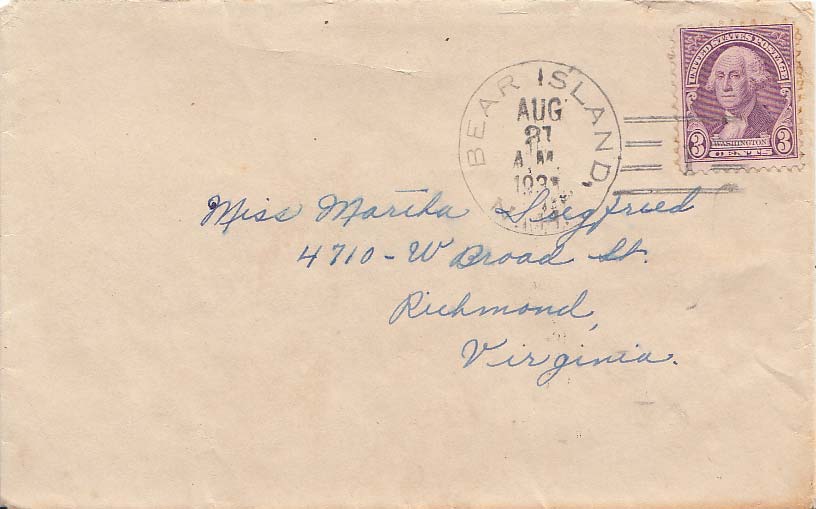 UNITED STATES POSTAGE
3 WASHINGTON 3
CENTS
BEAR ISLAND,
AUG
A.M.
Miss Martha Siegfried
4710-W Broad St.
Richmond,
Virginia.